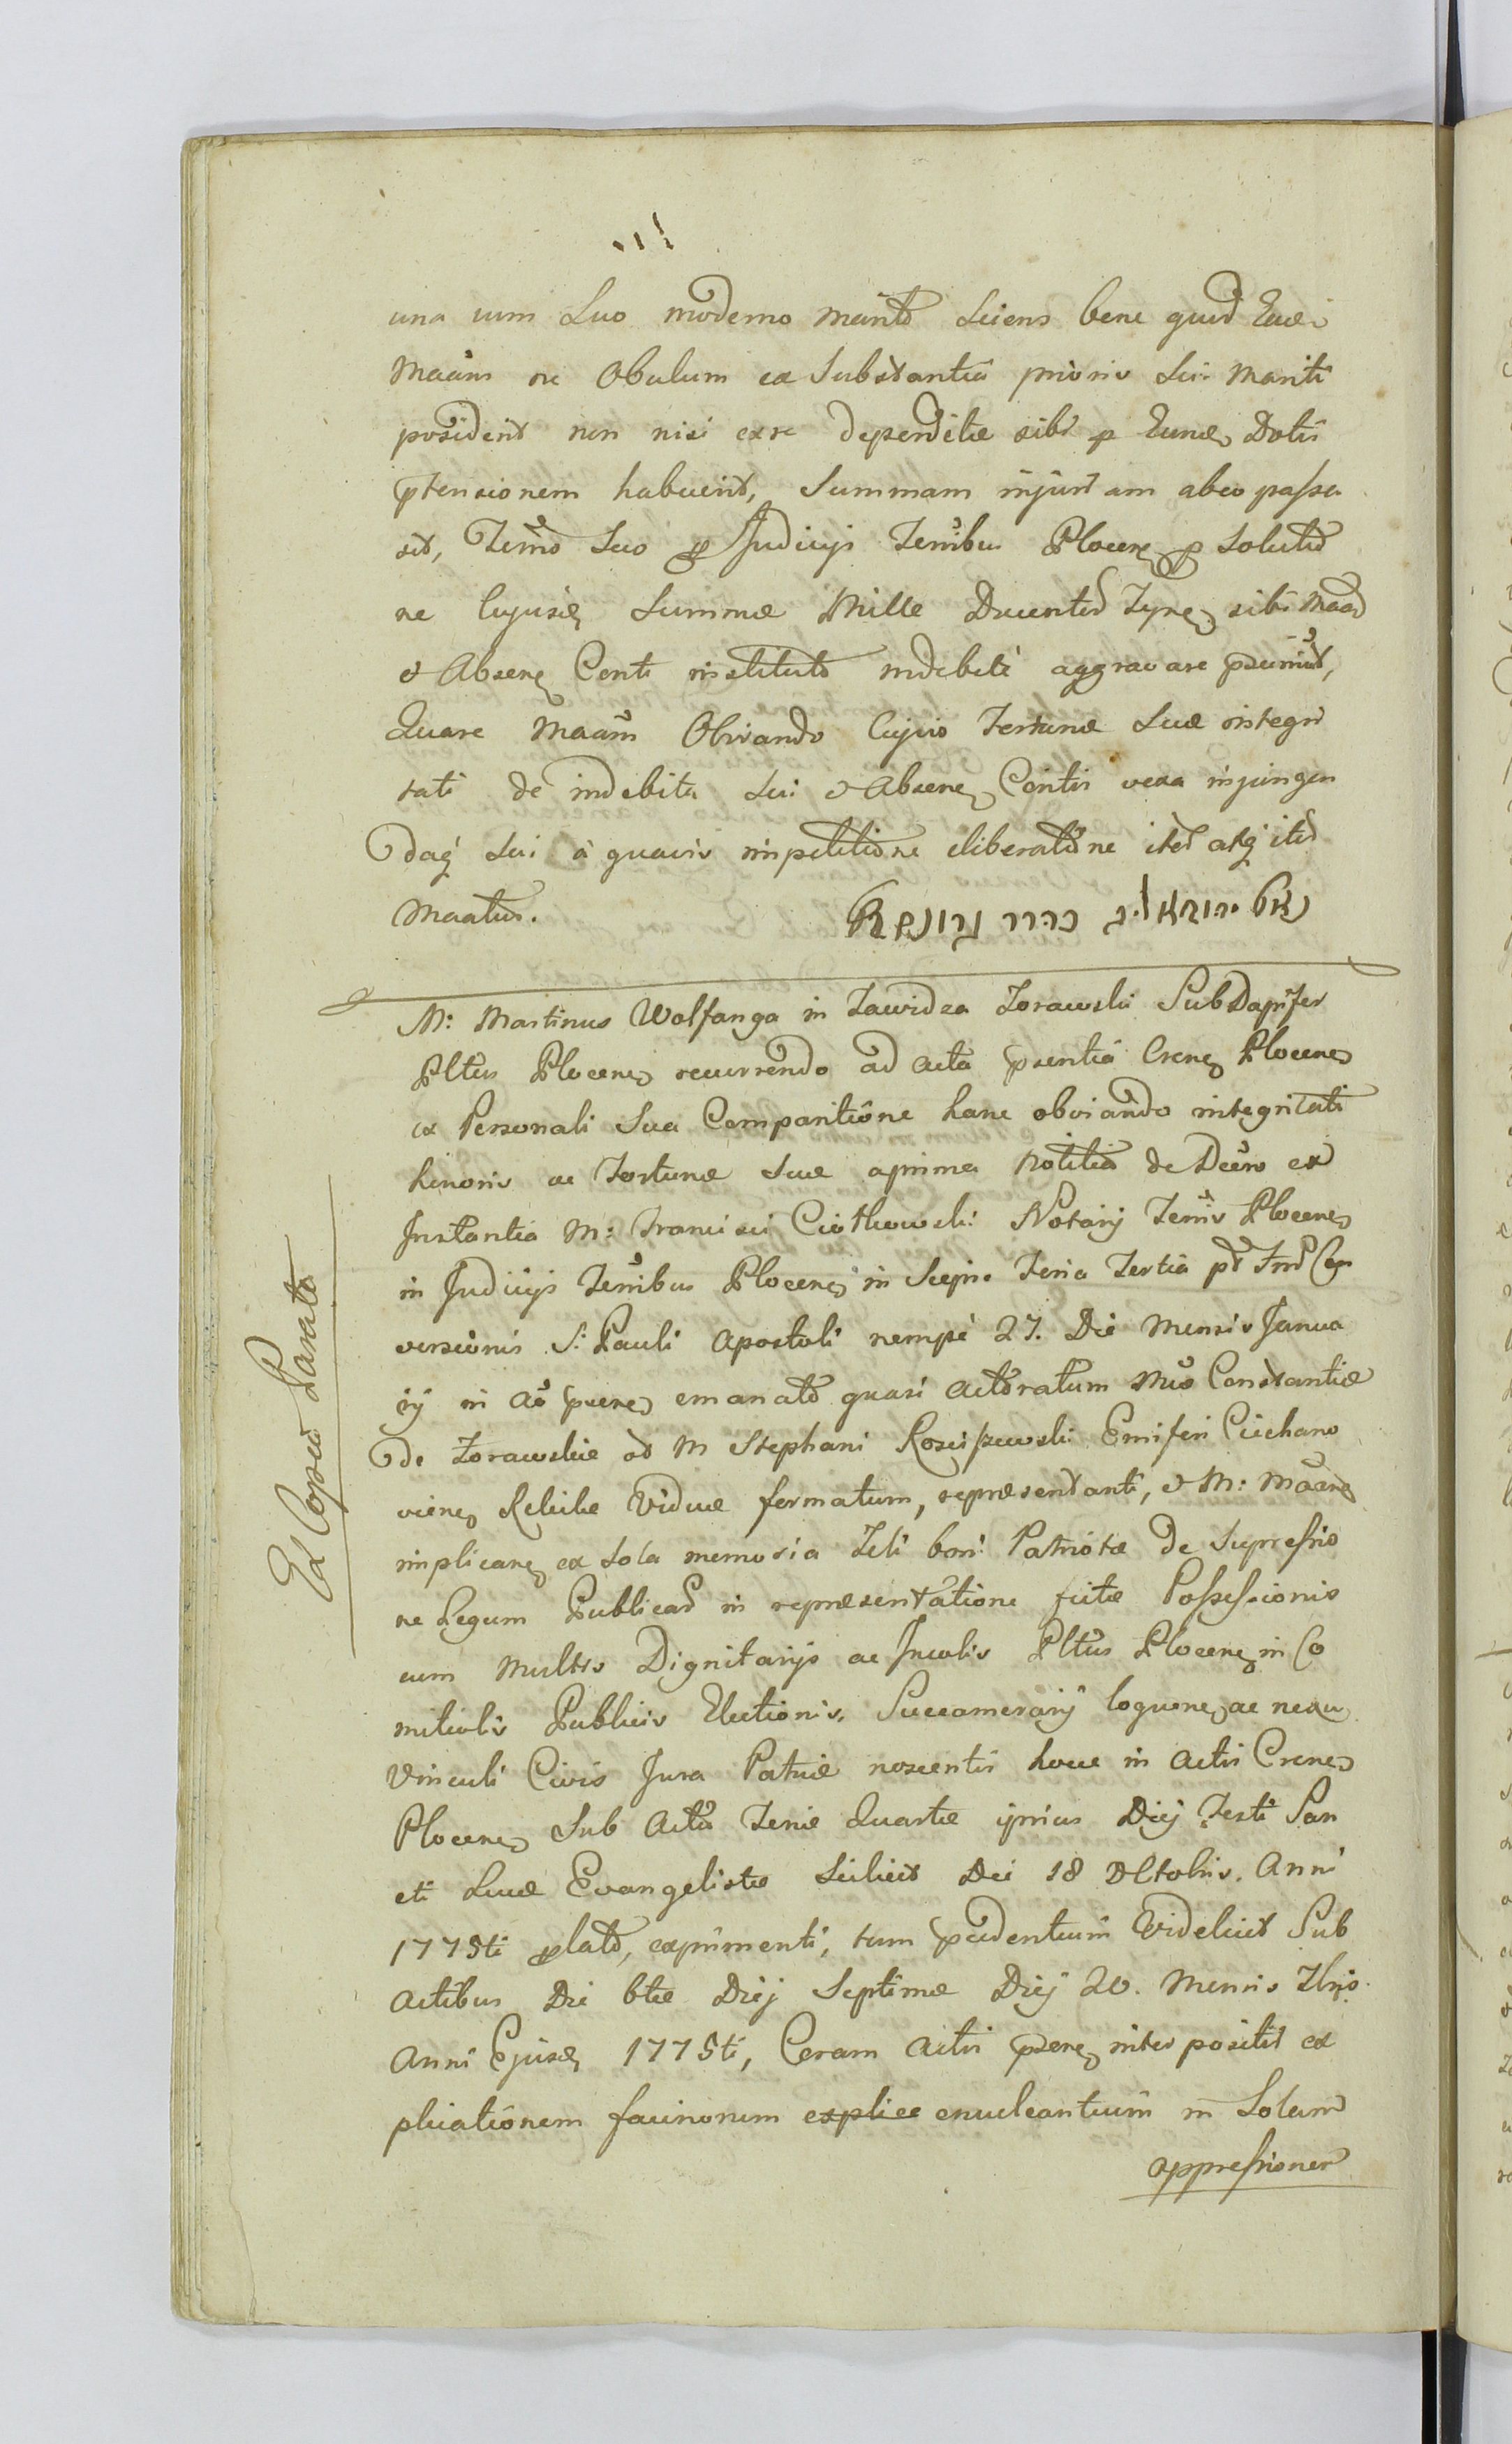 una cum Suo moderno Maritô Sciens bene quod Eadē
Maāns ne Obulum ex Substantia prioris Sui Mariti
possident non nisi exre dependitæ sibi p Eundē Dotis
ptensionem habuerit, Summam injuriam abeo passa
sit, Terrno Suo p Judicijs Terribus Plocen p Solutio
ne Cujusd Summæ Mille Ducentor Tynf sibi Maand
et Absen Conti institutô indebite aggravare psumit,
Quare Maans Obviando Cujus Fortunæ Suæ integri
tati de indebita Sui et Absen Contis vexa injungen
daq Sui a quavis impetitione eliberatione iter atq iter
Maatur.
M: Martinus Wolfanga in Zawidza Zorawski SubDapifer
Pltus Plocen recurrendo ad acta psentia Crens Plocen
ex Personali Sua Comparitione hanc obviando integritati
honoris ac Fortunæ Suæ aprima notitia de Decro ex
Instantia M: Francisci Ciotkowski Notarij Terris Plocen
in Judicijs Terribus Plocen in Sierpc Feria Tertia pt Fest Con
versionis S: Pauli Apostoli nempè 27. Die Mensis Janua
rij in Ao psen emanatô quasi actoratum Mco Constantiæ
de Zorawskie od M Stephani Rosciszewski Ensiferi Ciechano
vien Relictæ Viduæ formatum, repræsentanti, et M: Maans
implican ex Sola memoria Zeli boni Patriotæ de Supressio
ne Legum Publicar in repræsentatione fictæ Possessionis
cum Multis Dignitarijs ac Incolis Pltus Plocen in Co
mitiolis Publicis Electionis Succamerarij loquen ac nexu
Vinculi Civis Jura Patriæ noscentis hocce in Actis Crens
Plocen Sub Actu Feriæ Quartæ ipsius Diej Festi San
cti Lucæ Evangelistæ Scilicet Die 18 Octobris. Anni
1775ti plato, exprimenti, tum pcedentium Videlicet Sub
Actibus Die Diej Septimæ Diej 20. Mensis
Anni Ejusd 1775ti, Coram Actis psen inter positis ex
plicationem facinorum explice enucleantium in Solam
oppressionem
Ex Copia Parata